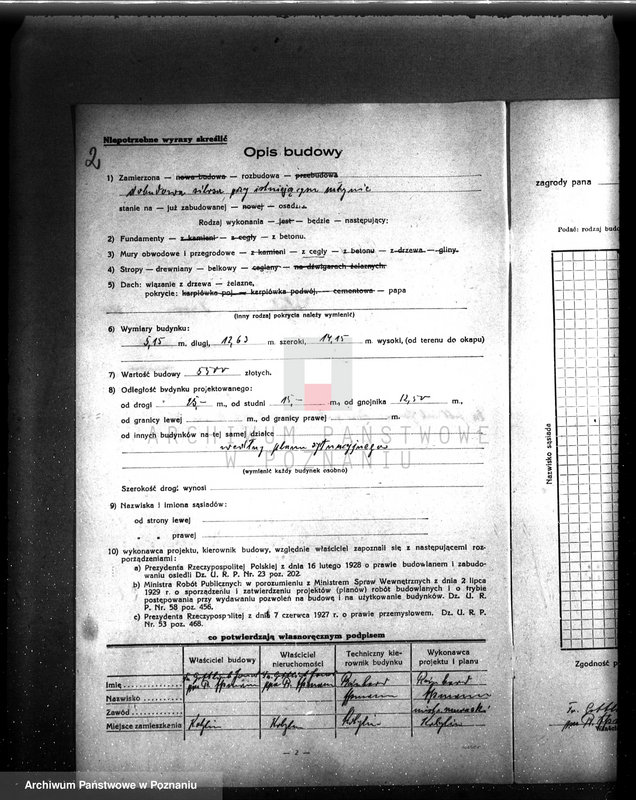 2
Niepotrzebne wyrazy skreślić
Opis budowy
1) Zamierzona — nowa budowa — rozbudowa — przebudowa
dobudowa silosa przy istniejącym młynie
stanie na — już zabudowanej — nowej — osadzie.
Rodzaj wykonania — jest — będzie — następujący:
2) Fundamenty — z kamieni — z cegły — z betonu.
3) Mury obwodowe i przegrodowe — z kamieni — z cegły — z betonu — z drzewa — gliny.
4) Stropy — drewniany — belkowy — ceglany — na dźwigarach żelaznych.
5) Dach: wiązanie z drzewa — żelazne,
pokrycie: karpiówka poj. — karpiówka podwój. — cementowa — papa
(inny rodzaj pokrycia należy wymienić)
6) Wymiary budynku:
5,15 m. długi, 12,63 m. szeroki, 14,15 m. wysoki, (od terenu do okapu)
7) Wartość budowy 5500 złotych.
8) Odległość budynku projektowanego:
od drogi 25,— m., od studni 15,— m., od gnojnika 12,50 m.,
od granicy lewej m., od granicy prawej m.
od innych budynków na tej samej działce
według planu sytuacyjnego
(wymienić każdy budynek osobno)
Szerokość drogi wynosi
9) Nazwiska i imiona sąsiadów:
od strony lewej
„ „ prawej
10) wykonawca projektu, kierownik budowy, względnie właściciel zapoznali się z następującemi rozporządzeniami:
a) Prezydenta Rzeczypospolitej Polskiej z dnia 16 lutego 1928 o prawie budowlanem i zabudowaniu osiedli Dz. U. R. P. Nr. 23 poz. 202.
b) Ministra Robót Publicznych w porozumieniu z Ministrem Spraw Wewnętrznych z dnia 2 lipca
1929 r. o sporządzaniu i zatwierdzeniu projektów (planów) robót budowlanych i o trybie
postępowania przy wydawaniu pozwoleń na budowę i na użytkowanie budynków. Dz. U. R.
P. Nr. 58 poz. 456.
c) Prezydenta Rzeczypospolitej z dnia 7 czerwca 1927 r. o prawie przemysłowem. Dz. U. R. P.
Nr. 53 poz. 468.
co potwierdzają własnoręcznym podpisem
Właściciel budowy Właściciel nieruchomości Techniczny kierownik budynku Wykonawca projektu i planu
Imię
Nazwisko
Zawód
Miejsce zamieszkania Kobylin Kobylin Kobylin Kobylin
— 2 —
zagrody pana
Podać: rodzaj budo
Nazwisko sąsiada
Zgodność p
ARCHIWUM PAŃSTWOWE
W POZNANIU
Archiwum Państwowe w Poznaniu